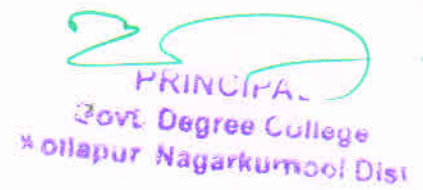 PRINCIPAL
Govt. Degree College
Kollapur Nagarkurnool Dist